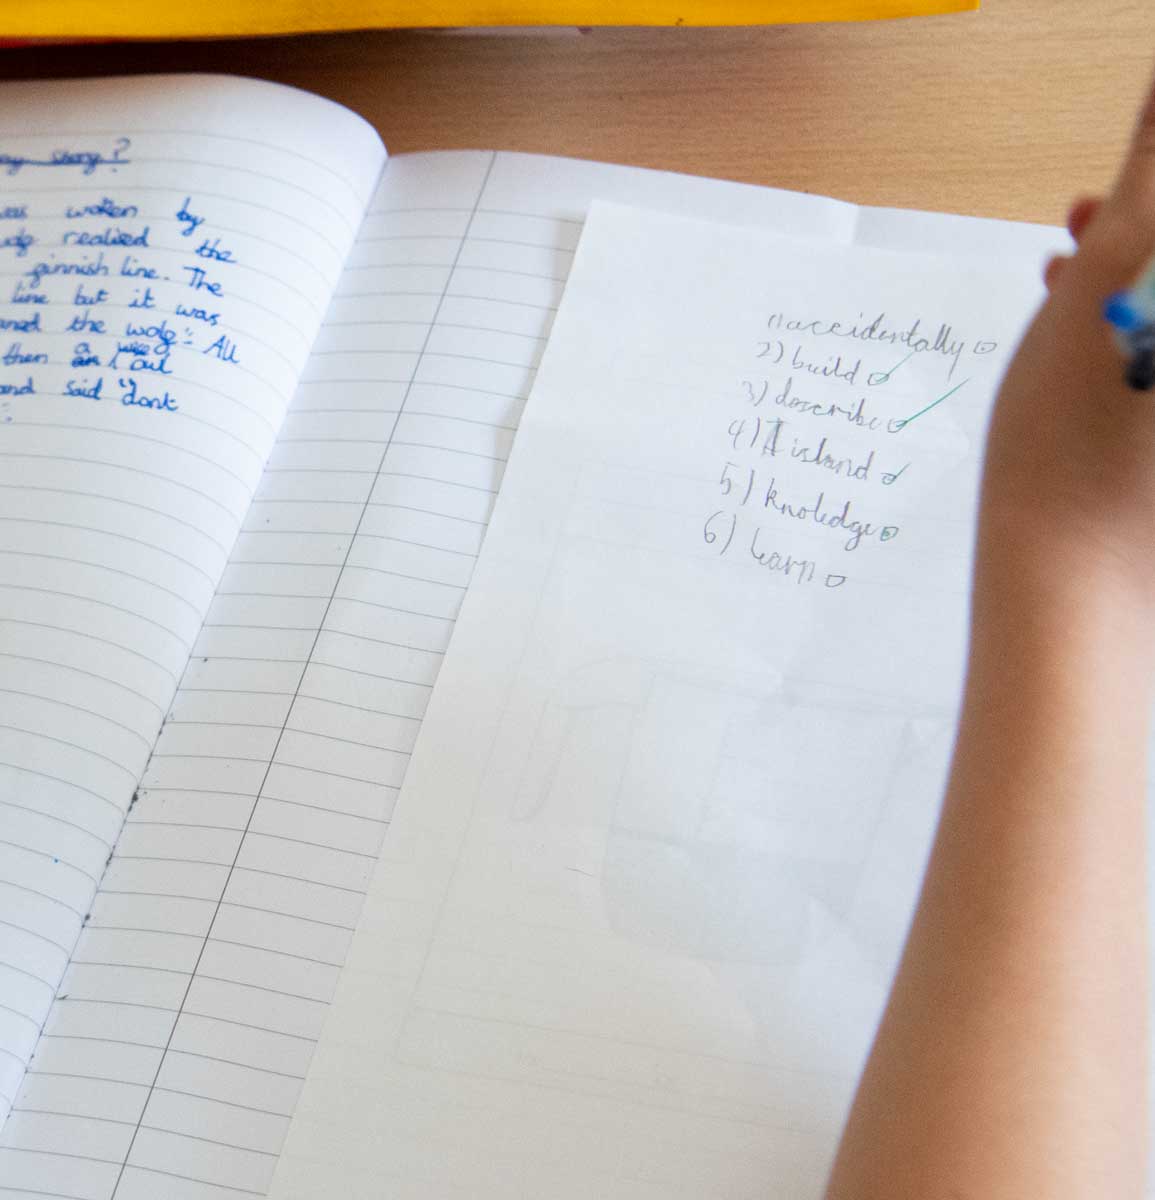 story?
was woken by
realised the
finnish line. The
line but it was
the wolf". All
then a wise owl
and said "dont
1) accidentally
2) build
3) describe
4) I island
5) knoledge
6) learn